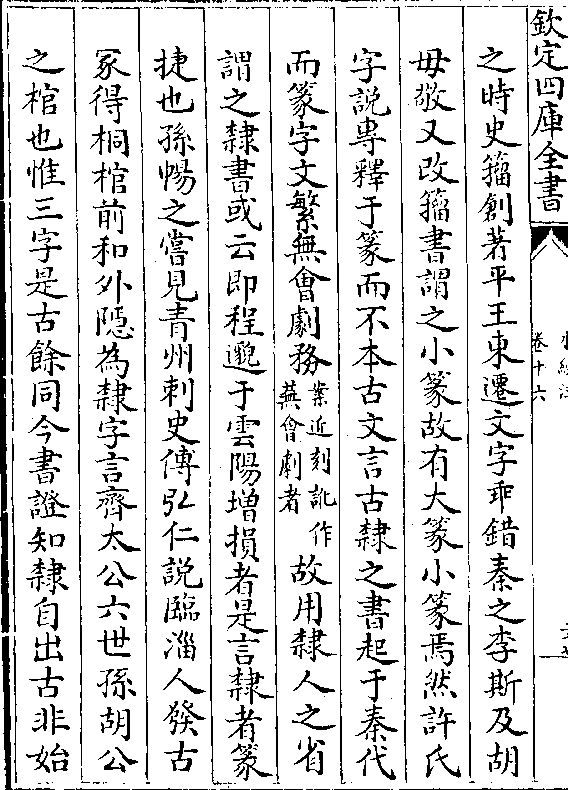 欽定四庫全書
卷十六
之時史籀創著平王東遷文字乖錯秦之李斯及胡
毋敬又改籀書謂之小篆故有大篆小篆焉然許氏
字說專釋于篆而不本古文言古隸之書起于秦代
而篆字文繁無會劇務案近刻訛作蕪會劇者故用隸人之省
謂之隸書或云即程邈于雲陽增損者是言隸者篆
捷也孫暢之嘗見青州刺史傅弘仁說臨淄人發古
冢得桐棺前和外隱為隸字言齊太公六世孫胡公
之棺也惟三字是古餘同今書證知隸自出古非始